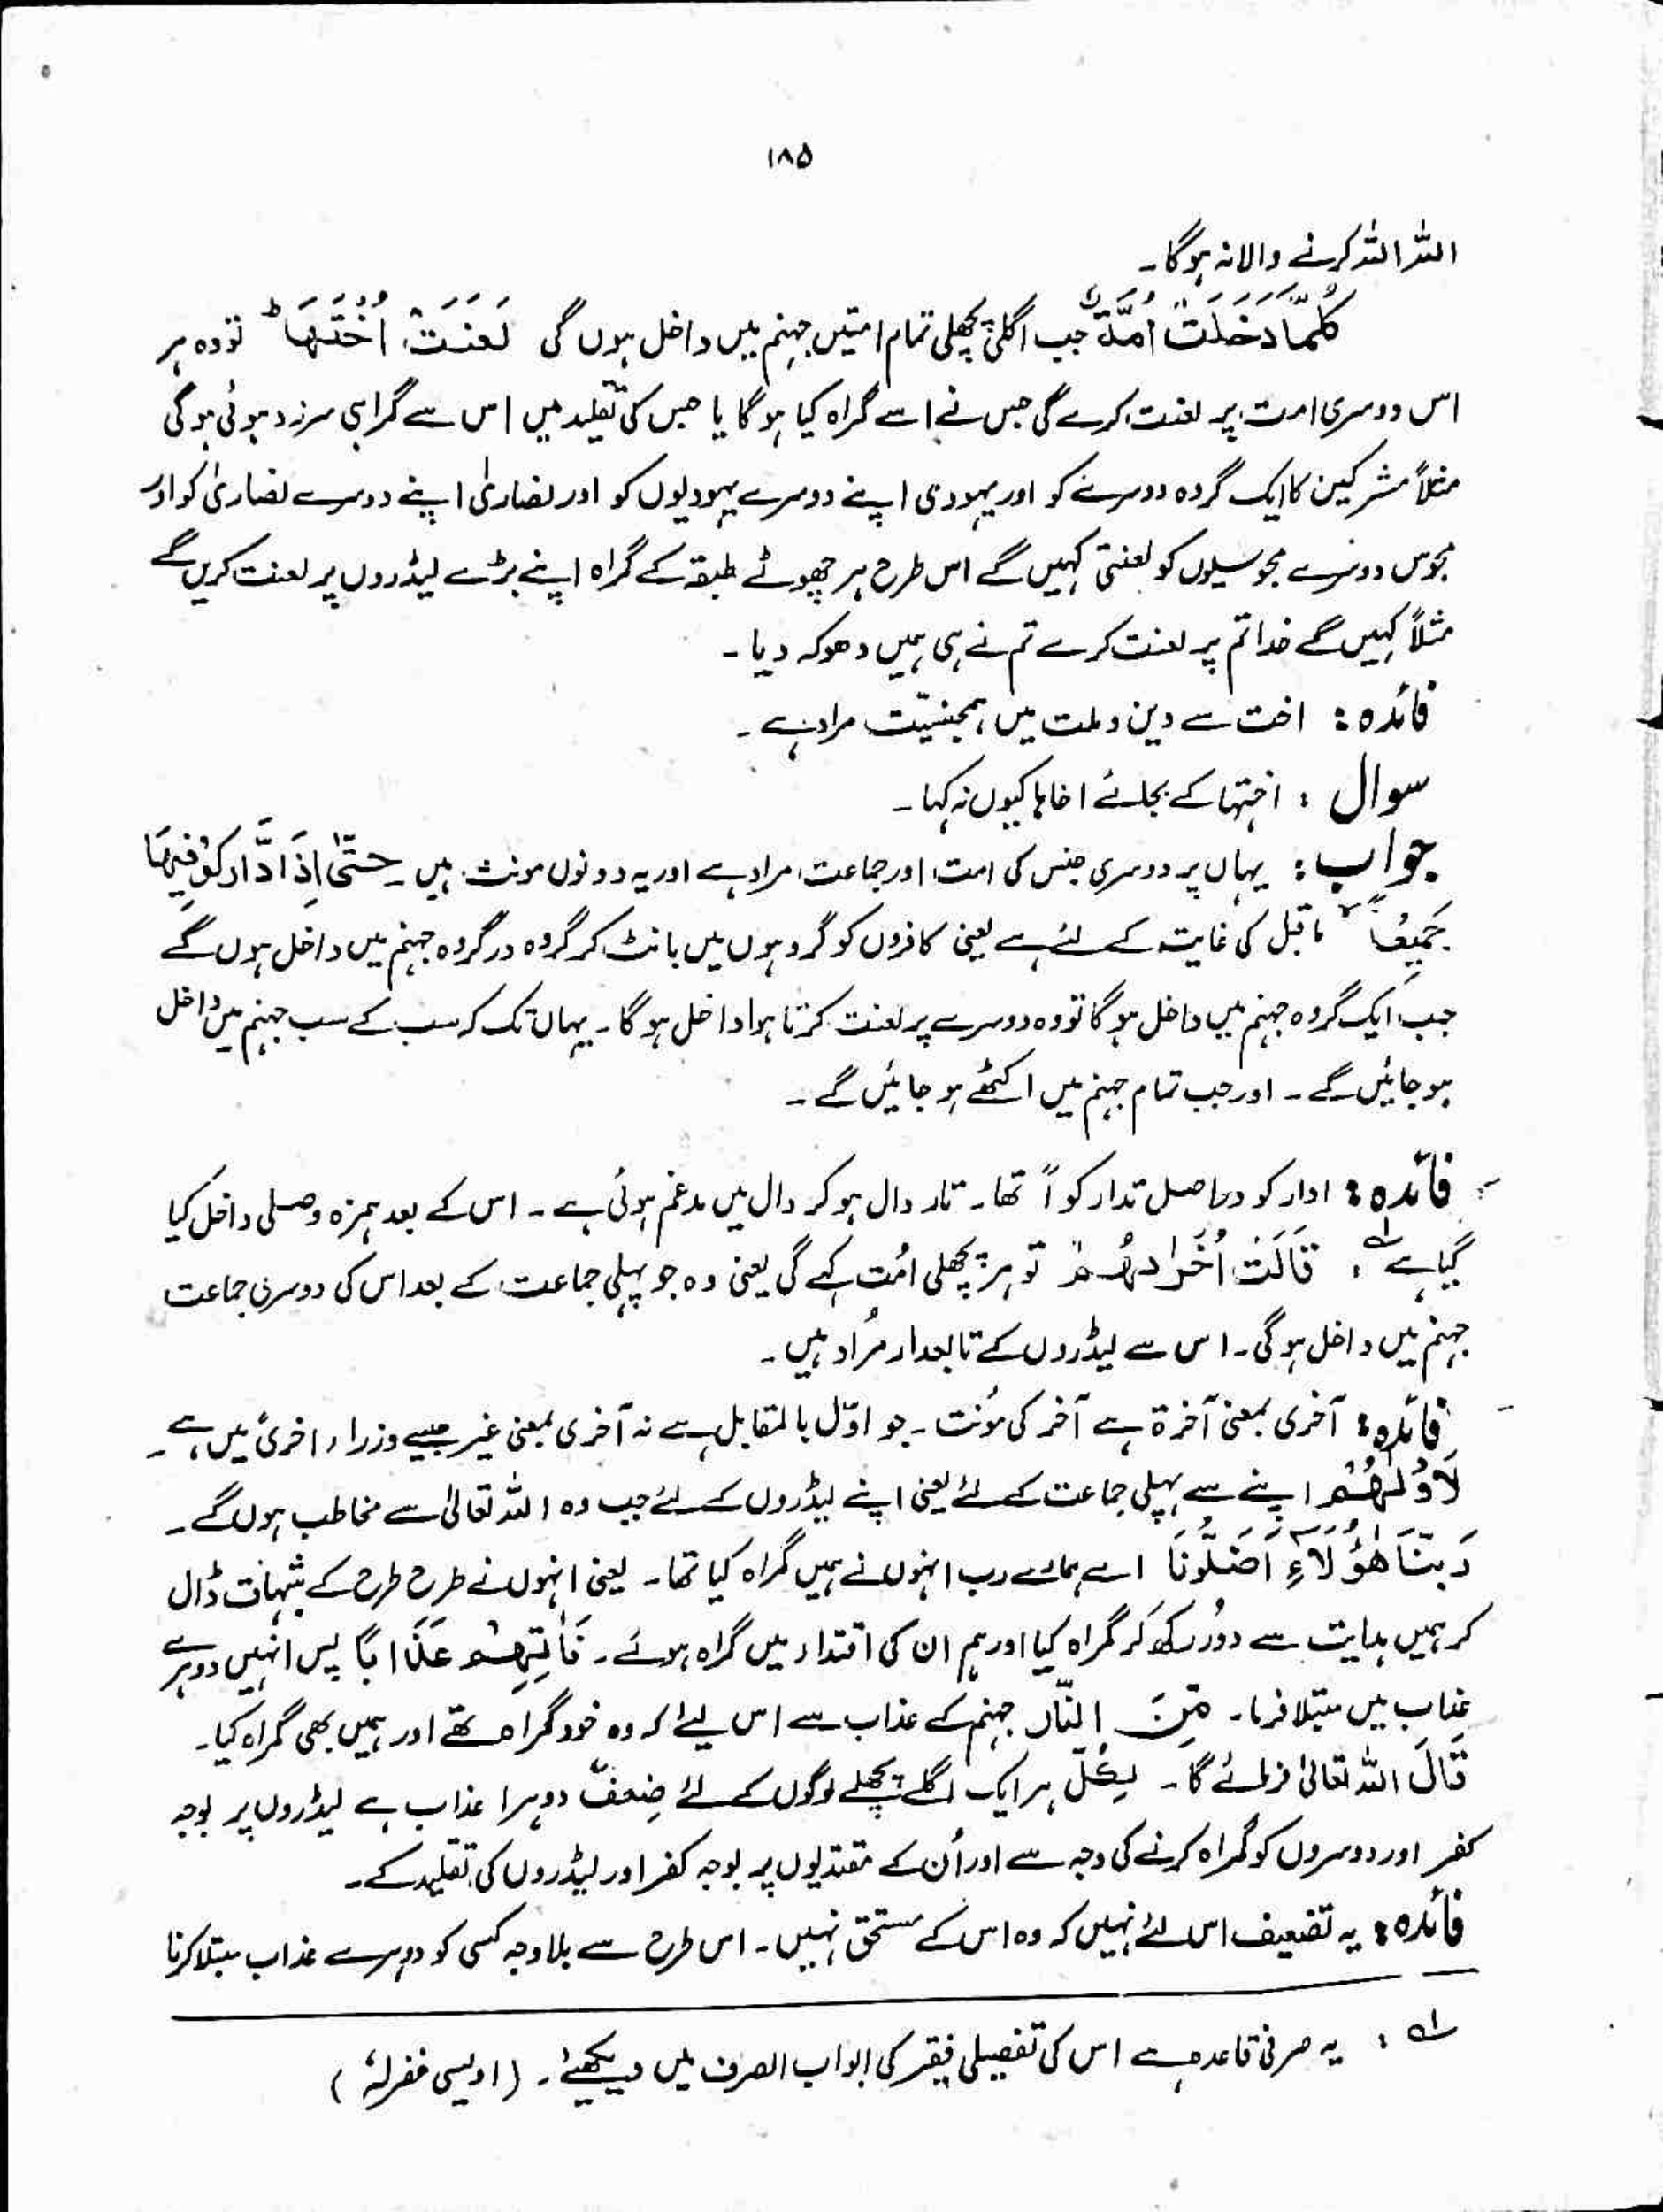 ۱۸۵
اللہ اللہ کرنے والا نہ ہوگا۔
كُلَّمَا دَخَلَتْ اُمَّةٌ جب اگلی پچھلی تمام امتیں جہنم میں داخل ہوں گی لَعَنَتْ اُخْتَهَا ط تو وہ ہر
اس دوسری امت پر لعنت کرے گی جس نے اسے گمراہ کیا ہوگا یا جس کی تقلید میں اس سے گمراہی سرزد ہوئی ہوگی
مثلاً مشرکین کا ایک گروہ دوسرے کو اور یہودی اپنے دوسرے یہودیوں کو اور نصاریٰ اپنے دوسرے نصاریٰ کو اور
مجوس دوسرے مجوسیوں کو لعنتی کہیں گے اس طرح ہر چھوٹے طبقہ کے گمراہ اپنے بڑے لیڈروں پر لعنت کریں گے
مثلاً کہیں گے خدا تم پر لعنت کرے تم نے ہی ہمیں دھوکہ دیا۔
فائدہ : اخت سے دین و ملت میں ہمجنسیّت مراد ہے۔
سوال : اختہا کے بجائے اخاہا کیوں نہ کہا۔
جواب : یہاں پر دوسری جنس کی امت اور جماعت مراد ہے اور یہ دونوں مونث ہیں۔ حَتّٰى اِذَا ادَّارَكُوْا فِيْهَا
جَمِيْعًا ماقبل کی غایت کے لئے ہے یعنی کافروں کو گروہوں میں بانٹ کر گروہ در گروہ جہنم میں داخل ہوں گے
جب ایک گروہ جہنم میں داخل ہوگا تو وہ دوسرے پر لعنت کرتا ہوا داخل ہوگا۔ یہاں تک کہ سب کے سب جہنم میں داخل
ہو جائیں گے۔ اور جب تمام جہنم میں اکٹھے ہو جائیں گے۔
فائدہ : ادارکو دراصل تدارکواً تھا۔ تار دال ہو کر دال میں مدغم ہوئی ہے۔ اس کے بعد ہمزہ وصلی داخل کیا
گیا ہے ؎۱ ، قَالَتْ اُخْرٰىهُمْ تو ہر پچھلی اُمت کہے گی یعنی وہ جو پہلی جماعت کے بعد اس کی دوسری جماعت
جہنم میں داخل ہوگی۔ اس سے لیڈروں کے تابعدار مُراد ہیں۔
فائدہ : آخری بمعنی آخرۃ ہے آخر کی مؤنث۔ جو اوّل بالمقابل ہے نہ آخری بمعنی غیر جیسے وزراء اخریٰ میں ہے۔
لِاُوْلٰىهُمْ اپنے سے پہلی جماعت کے لئے یعنی اپنے لیڈروں کے لئے جب وہ اللہ تعالیٰ سے مخاطب ہوں گے۔
رَبَّنَا هٰٓؤُلَآءِ اَضَلُّوْنَا اے ہمارے رب انہوں نے ہمیں گمراہ کیا تھا۔ یعنی انہوں نے طرح طرح کے شبہات ڈال
کر ہمیں ہدایت سے دُور رکھ کر گمراہ کیا اور ہم ان کی اقتداء میں گمراہ ہوئے۔ فَاٰتِهِمْ عَذَابًا پس انہیں دوہرے
عذاب میں مبتلا فرما۔ مِّنَ النَّارِ جہنم کے عذاب سے اس لیے کہ وہ خود گمراہ تھے اور ہمیں بھی گمراہ کیا۔
قَالَ اللہ تعالیٰ فرمائے گا۔ لِكُلٍّ ہر ایک اگلے پچھلے لوگوں کے لئے ضِعْفٌ دوہرا عذاب ہے لیڈروں پر بوجہ
کفر اور دوسروں کو گمراہ کرنے کی وجہ سے اور اُن کے مقتدیوں پر بوجہ کفر اور لیڈروں کی تقلید کے۔
فائدہ : یہ تضعیف اس لئے نہیں کہ وہ اس کے مستحق نہیں۔ اس طرح سے بلاوجہ کسی کو دوہرے عذاب مبتلا کرنا
؎۱ : یہ صرفی قاعدہ ہے اس کی تفصیلی فقیر کی ابواب الصرف میں دیکھیئے۔ (اویسی غفرلہٗ)